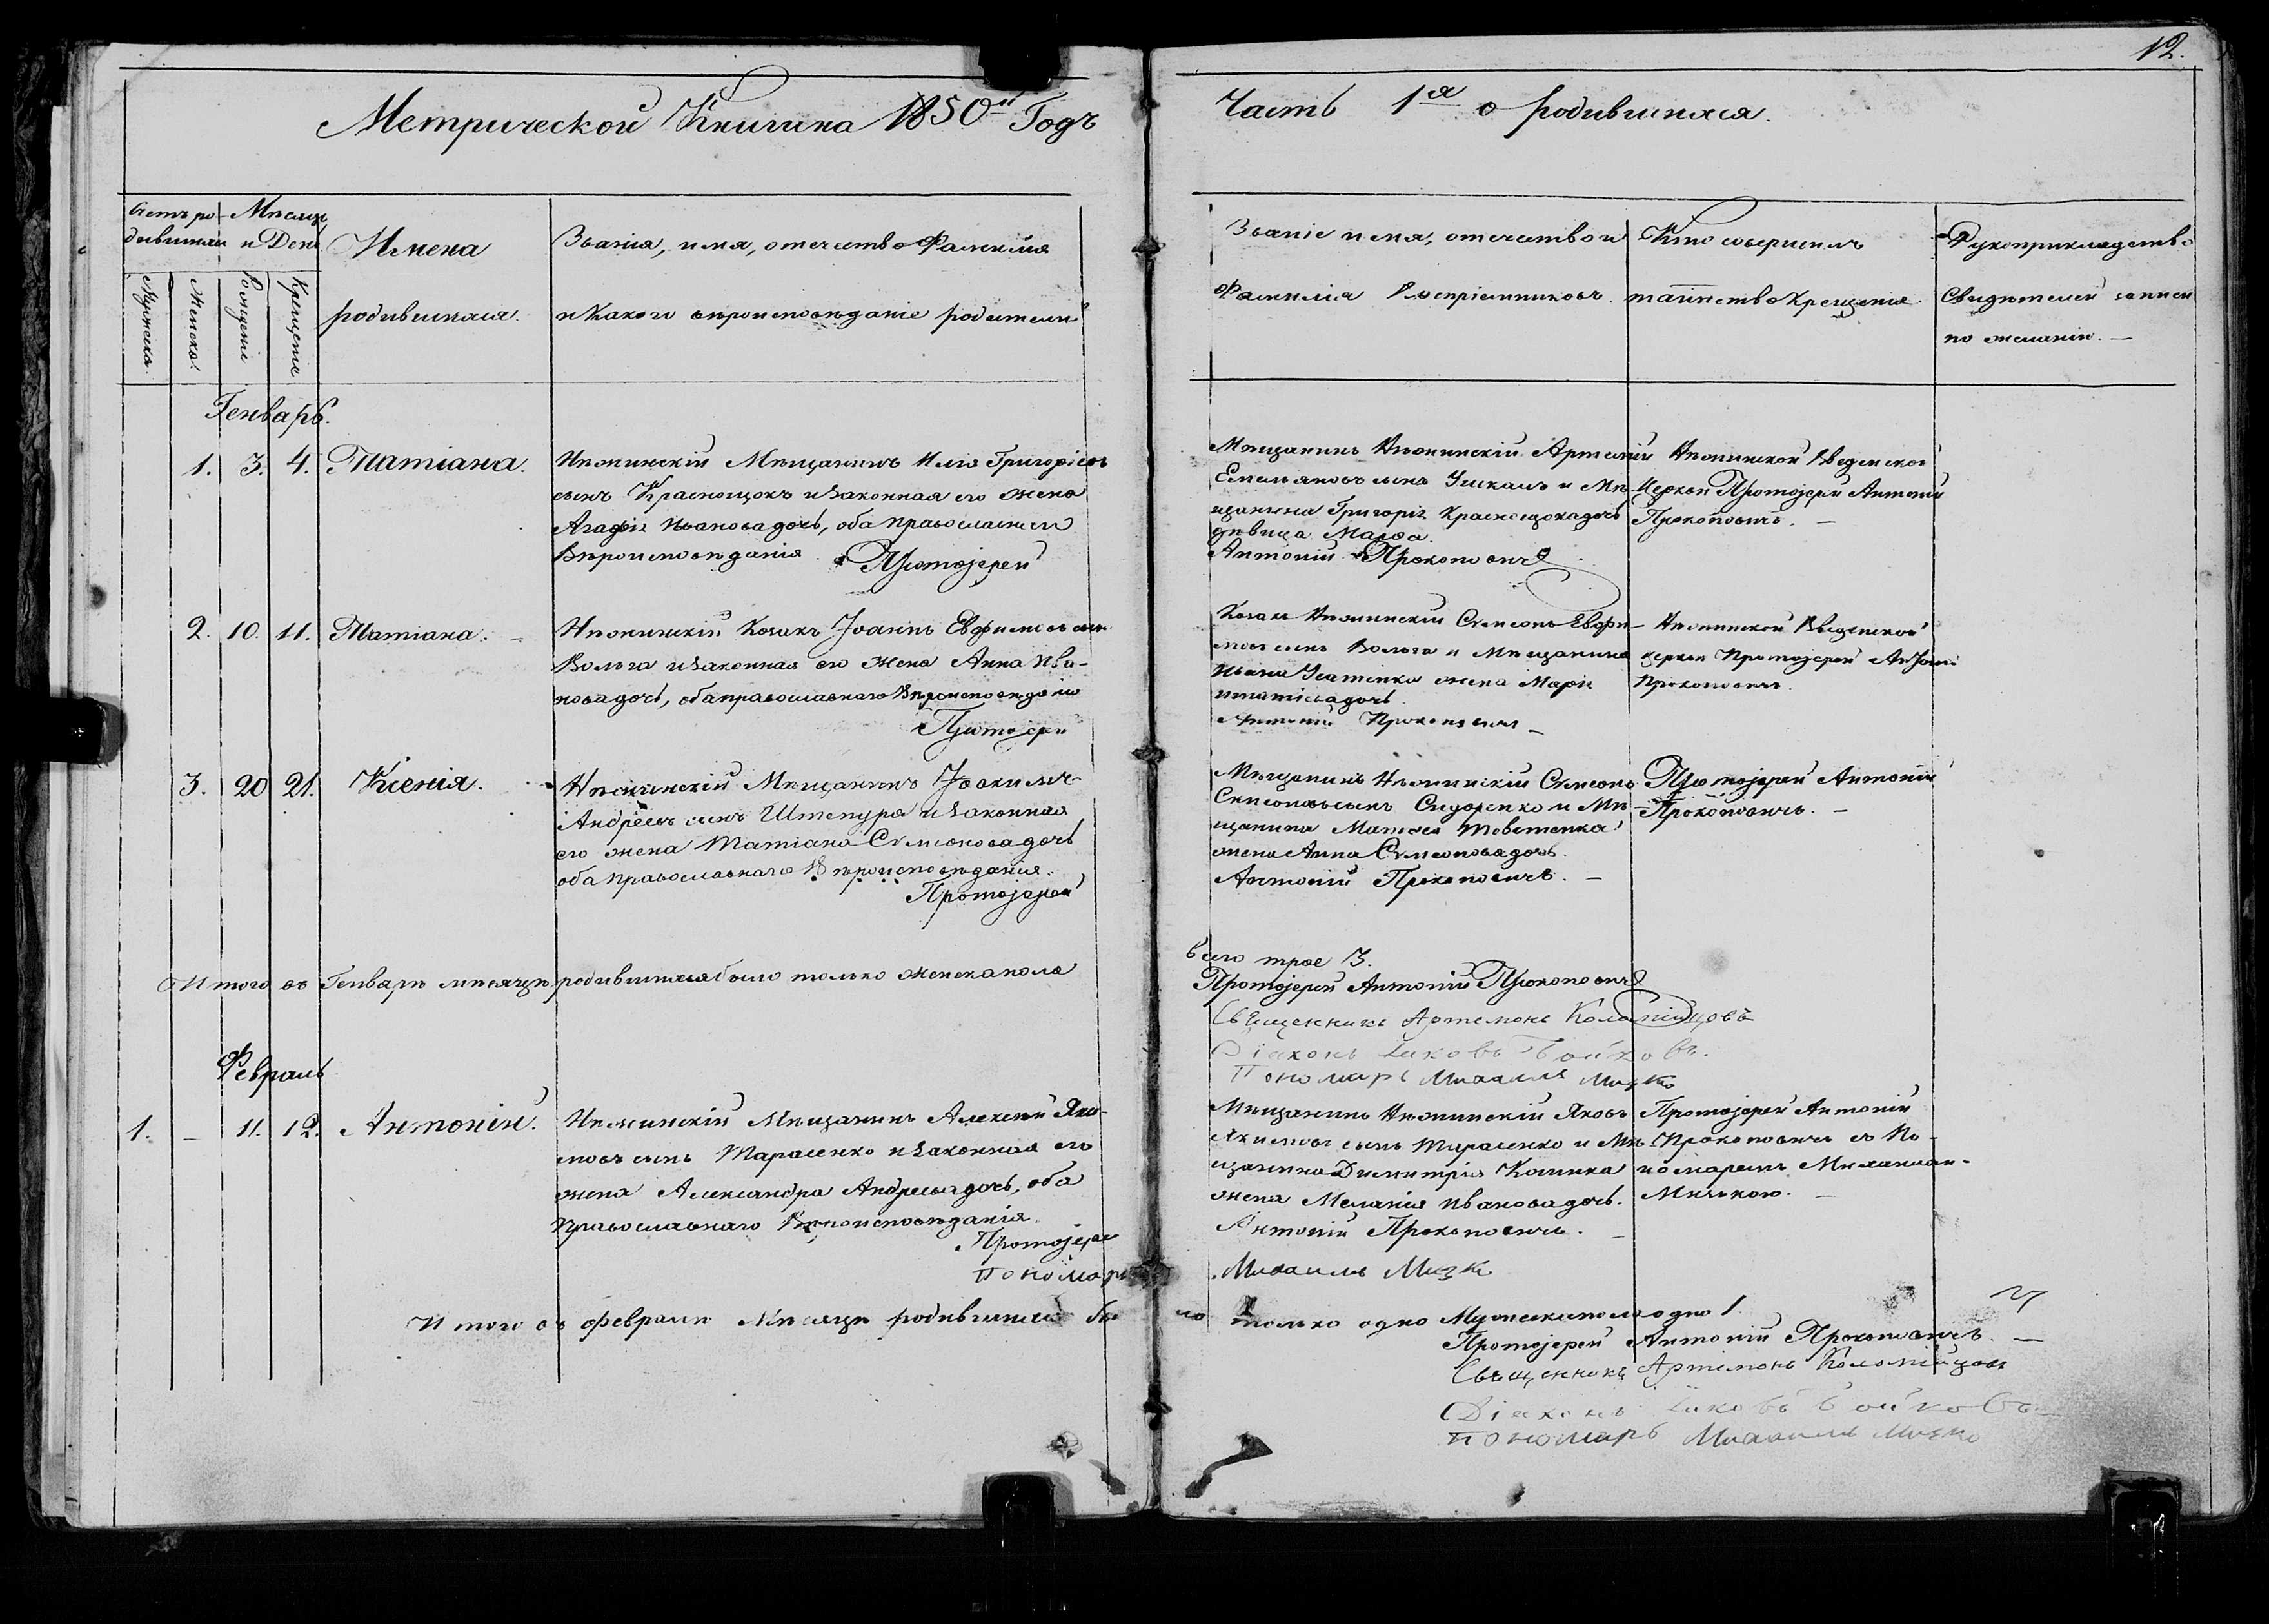 12.
Метрической Книги на 1850й Годъ
Часть 1я о родившихся.
Счетъ ро-
дившихся
Мѣсяцъ
и День
Имена
родившихся.
Званія, имя, отечество Фамилія
и Какого вѣроисповѣданіе родители
Мужеска.
Женска.
Рожденіе
Крещеніе
Званіе имя, отечество и
Фамилія Воспріемниковъ.
Кто совершилъ
таинство Крещенія
Рукоприкладство
Свидѣтелей записи
по желанію. —
Генварь.
1. 3. 4. Татіана.
Нѣжинскій Мѣщанинъ Илія Григоріевъ
сынъ Краснощокъ и законная его жена
Агафія Иванова дочь, оба православнаго
Вѣроисповѣданія. Протоjерей
Мѣщанинъ Нѣжинскій Артемій
Емельяновъ сынъ и Мѣ-
щанина Григорія Краснощока дочь
дѣвица Марфа.
Антоній Прокоповичъ
Нѣжинской Введенской
Церкви Протоjерей Антоній
Прокоповичъ. —
2. 10. 11. Татіана. –
Нѣжинскій Козакъ Jоаннъ Евфиміевъ сынъ
Вольга и законная его жена Анна Ива-
нова дочь, оба православнаго Вѣроисповѣданія
Протоjерей
Козакъ Нѣжинскій Сѵмеонъ Евфи-
міевъ сынъ Вольга и Мѣщанина
Ивана жена Марія
Игнатіева дочь
Антоній Прокоповичъ –
Нѣжинской Введенской
церкви Протоjерей Антоній
Прокоповичъ.
3. 20 21. Ксенія.
Нѣжинскій Мѣщанинъ Jоакимъ
Андреевъ сынъ Штепура и законная
его жена Татіана Сѵмеонова дочь
оба православнаго Вѣроисповѣданія.
Протоjерей
Мѣщанинъ Нѣжинскій Сѵмеонъ
Сѵмеоновъ сынъ Сидоренко и Мѣ-
щанина Матѳея Товстенка
жена Анна Сѵмеонова дочь.
Антоній Прокоповичъ. –
Протоjерей Антоній
Прокоповичъ. –
Итого въ Генварѣ мѣсяцѣ родившихся было только женска пола
всего трое 3.
Протоjерей Антоній Прокоповичъ
Священникъ Артемонъ Коломійцовъ
Діаконъ Іаковъ Бойковъ.
Пономарь Михаилъ
Февраль
1. – 11. 12. Антоній.
Нѣжинскій Мѣщанинъ Алексѣй Яки-
мовъ сынъ Тарасенко и законная его
жена Александра Андреева дочь, оба
Православнаго Вѣроисповѣданія.
Протоjерей
Пономарь
Мѣщанинъ Нѣжинскій Яковъ
Якимовъ сынъ Тарасенко и Мѣ-
щанина Димитрія жена Меланія Иванова дочь.
Антоній Прокоповичъ. –
Михаилъ
Протоjерей Антоній
Прокоповичъ съ По-
номаремъ Михаиломъ
Итого въ февралѣ Мѣсяцѣ родившихся бы
ло только одно Мужеска пола одно 1.
Протоjерей Антоній Прокоповичъ. —
Священникъ Артемонъ Коломійцовъ
Діаконъ Іаковъ Бойковъ
Пономарь Михаилъ